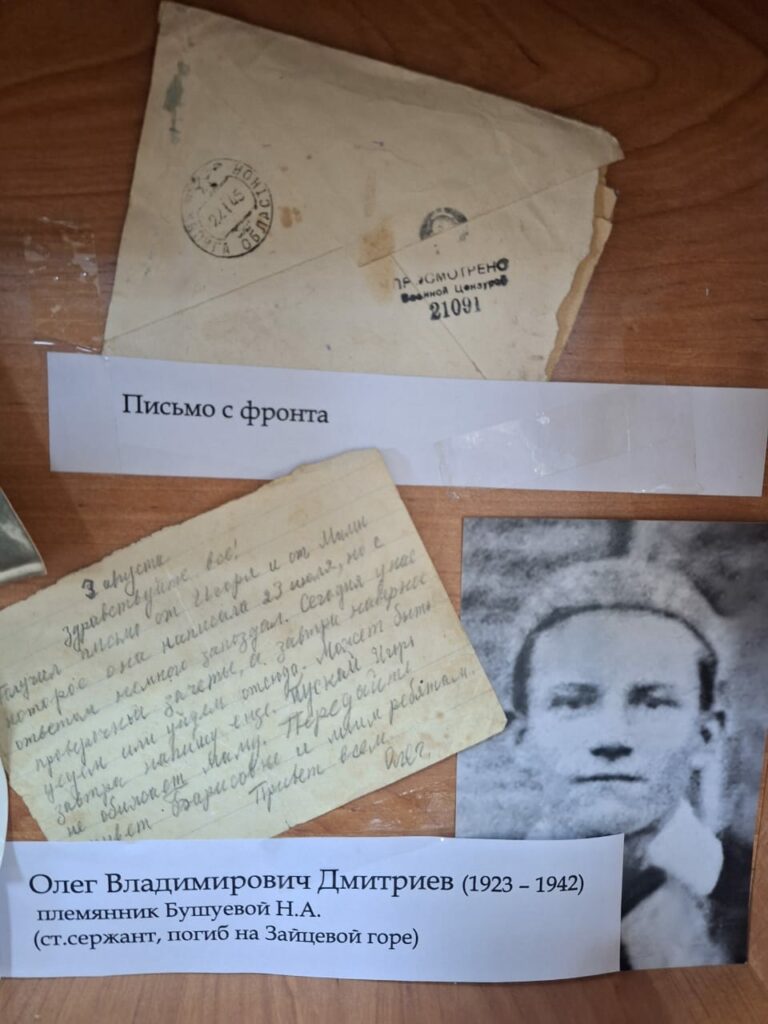 22 1 45
ОБЛАСТНОЙ
ПРОСМОТРЕНО
Военной Цензурой
21091
Письмо с фронта
3 августа
Здравствуйте, все!
Получил письмо от Игоря и от Мамы
которое она написала 23 июля, но с
ответом немного запоздал. Сегодня у нас
проверочный зачеты, а завтра наверное
уедем или уйдем отсюда. Может быть
завтра напишу еще. Пускай Игорь
не обижает Маму. Передайте
привет Барисовне и моим ребятам.
Привет всем.
Олег.
Олег Владимирович Дмитриев (1923 – 1942)
племянник Бушуевой Н.А.
(ст.сержант, погиб на Зайцевой горе)